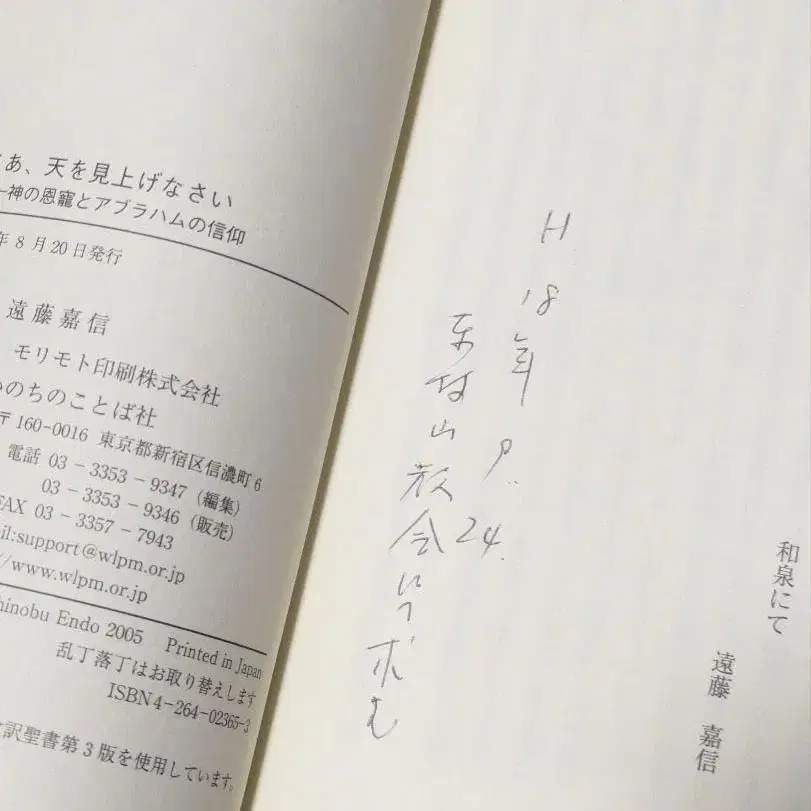 あ、天を見上げなさい
神の恩寵とアブラハムの信仰
年8月20日発行
遠藤嘉信
モリモト印刷株式会社
のちのことば社
〒160-0016 東京都新宿区信濃町6
電話 03-3353-9347（編集）
03-3353-9346（販売）
FAX 03-3357-7943
il:support@wlpm.or.jp
//www.wlpm.or.jp
hinobu Endo 2005 Printed in Japan
乱丁落丁はお取り替えします
ISBN4-264-02365-3
訳聖書第3版を使用しています。
和泉にて
遠藤 嘉信
H18年9.24.
東村山教会にて求む